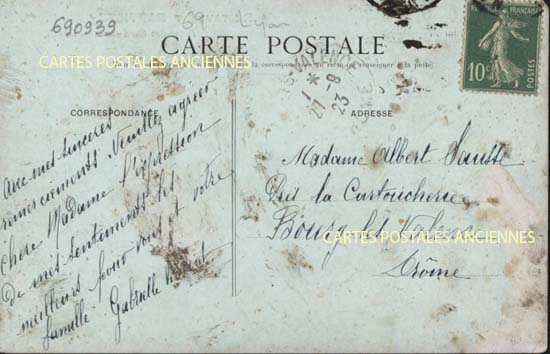 690939
69 Lyon
CARTE POSTALE
CARTES POSTALES ANCIENNES
la correspondance au recto (se renseigner à la poste)
CORRESPONDANCE
ADRESSE
RÉPUBLIQUE FRANÇAISE
10c
POSTES
1 *
21 - 8
23
Avec mes sincères
remerciements Veuillez agréer
Chère Madame l'expression
De mes sentiments les
meilleurs pour vous et votre
famille. Gabrielle
Madame Albert
Cité la Cartoucherie
Bourg-lès-Valence
Drôme
CARTES POSTALES ANCIENNES